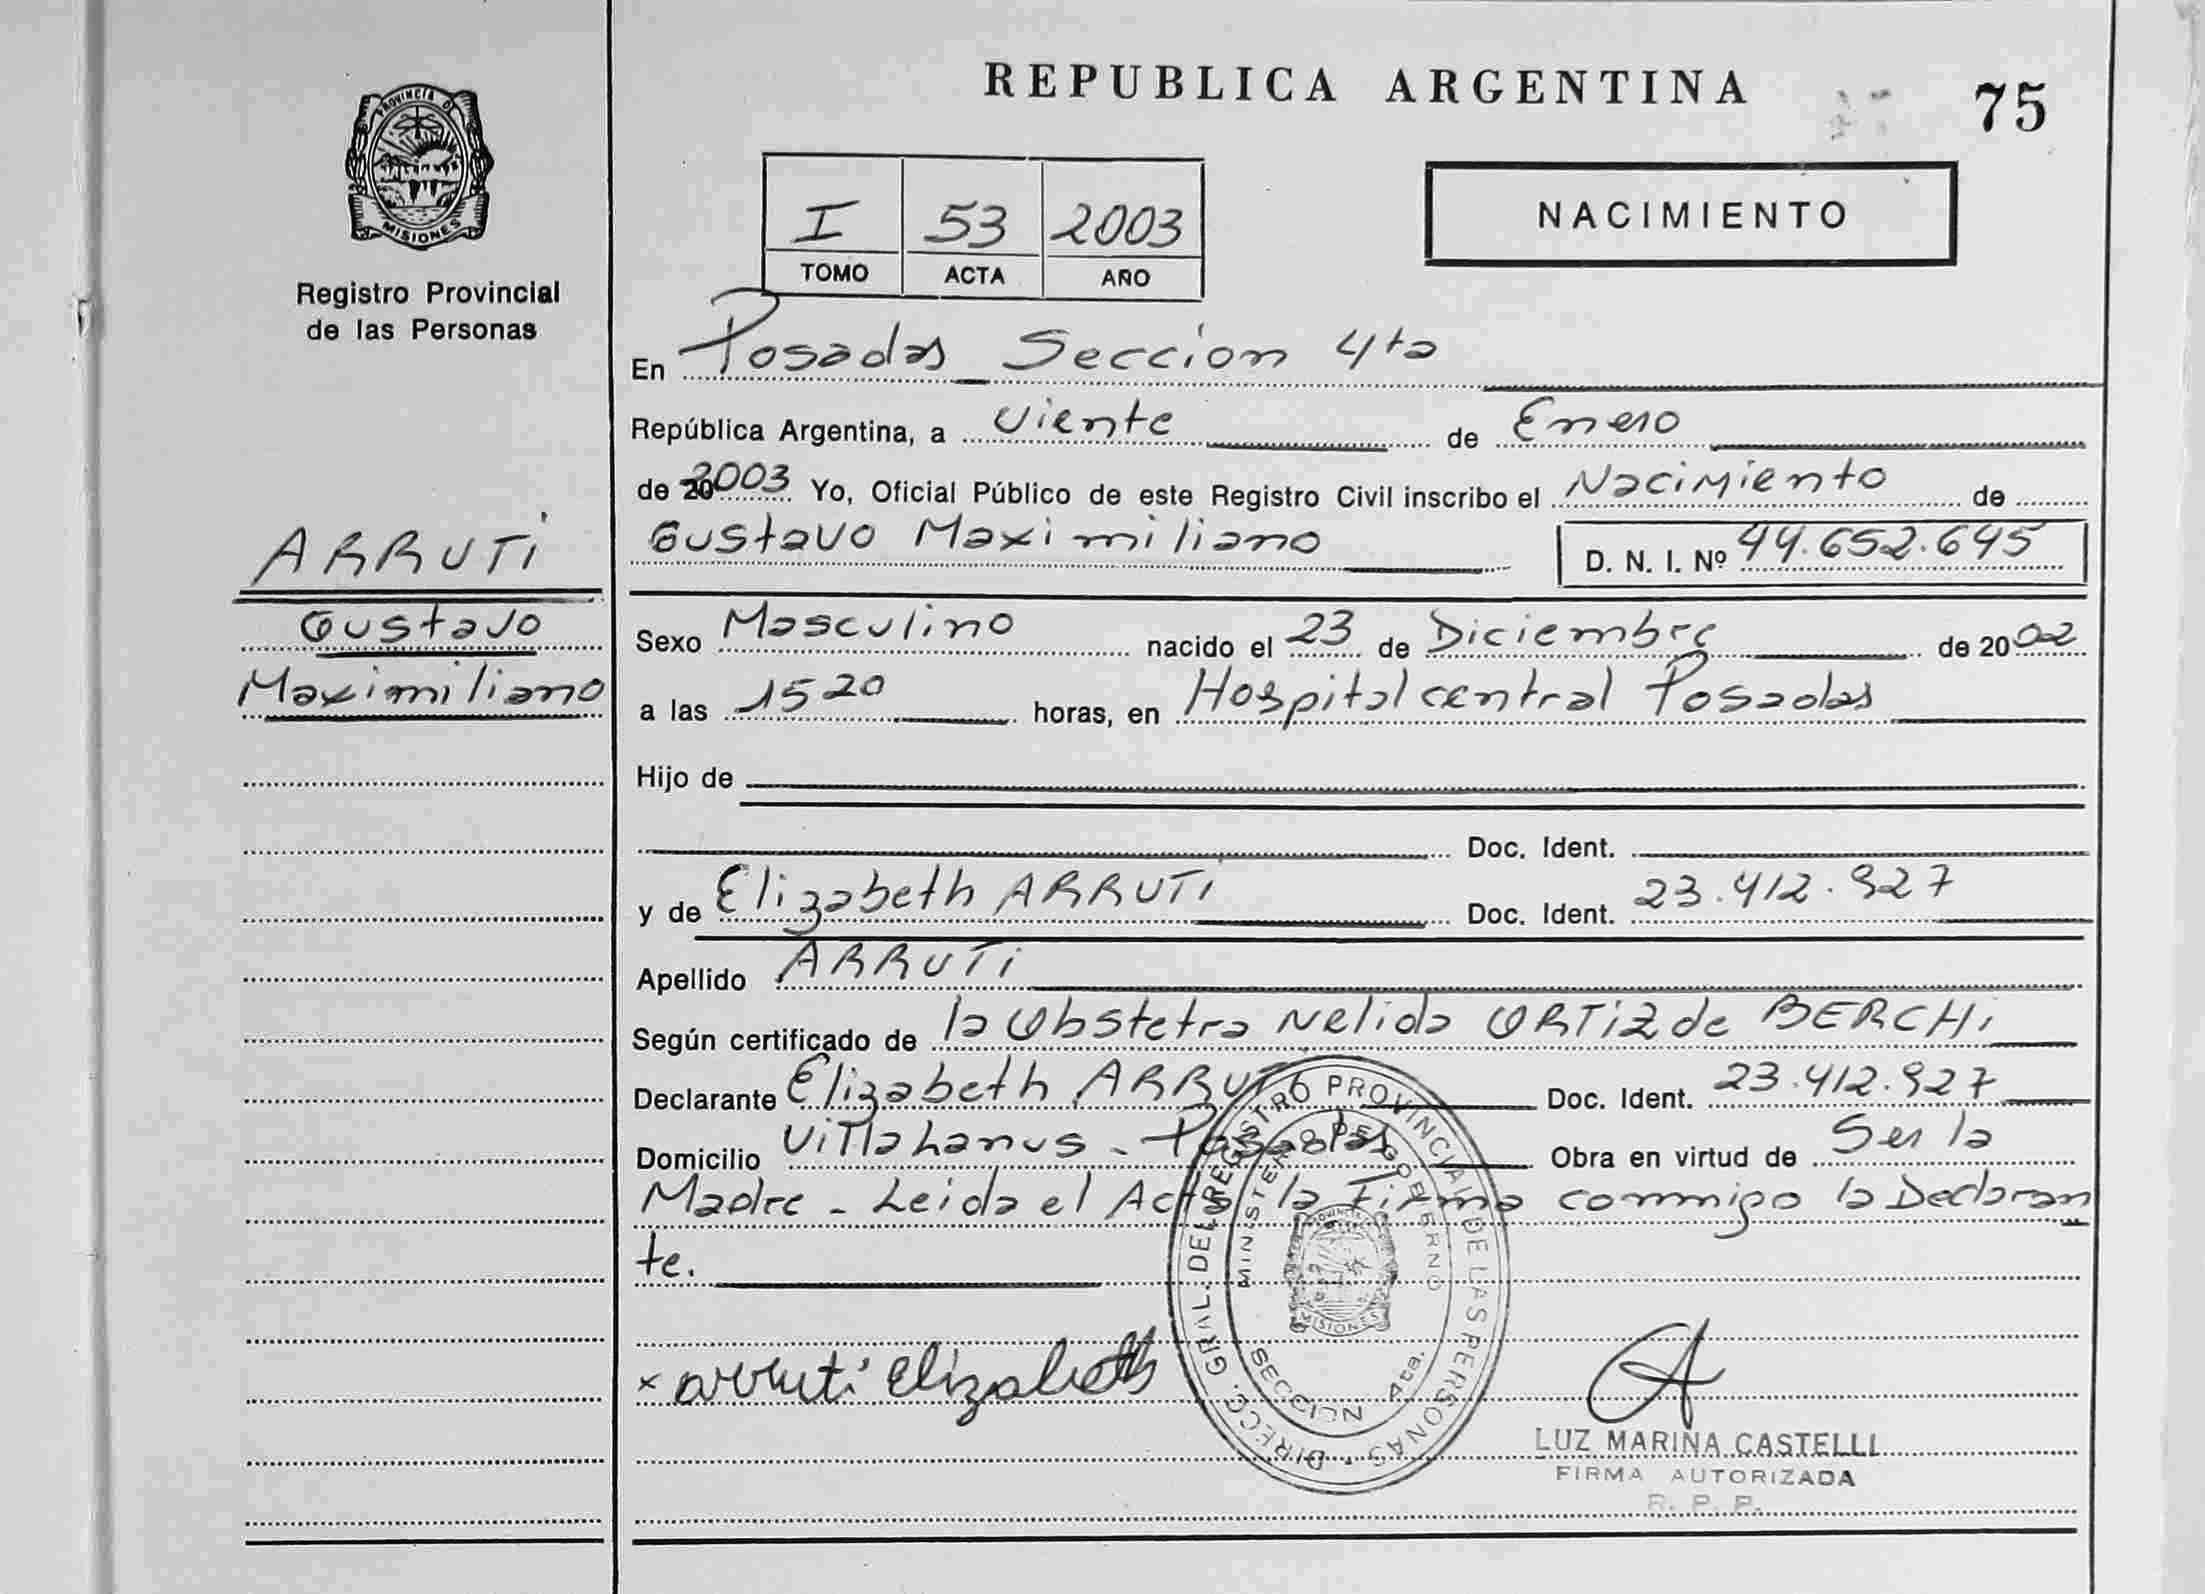 REPUBLICA ARGENTINA
75
PROVINCIA DE
MISIONES
Registro Provincial
de las Personas
I 53 2003
TOMO ACTA AÑO
NACIMIENTO
En Posadas Seccion 4ta
República Argentina, a Viente de Enero
de 20 2003 Yo, Oficial Público de este Registro Civil inscribo el Nacimiento de
Gustavo Maximiliano D. N. I. Nº 44.652.645
ARRUTI
Gustavo
Maximiliano
Sexo Masculino nacido el 23 de Diciembre de 2002
a las 15 20 horas, en Hospital central Posadas
Hijo de
Doc. Ident.
y de Elizabeth ARRUTI Doc. Ident. 23.412.927
Apellido ARRUTI
Según certificado de la Obstetra Nelida ORTIZ de BERCHI
Declarante Elizabeth ARRUTI Doc. Ident. 23.412.927
Domicilio Villa Lanus - Posadas Obra en virtud de Ser la
Madre - Leida el Acta la Firma conmigo la Declaran
te.
x arruti elizabeth
DIRECC. GRAL. DEL REGISTRO PROVINCIAL DE LAS PERSONAS
MINISTERIO DE GOBIERNO
PROVINCIA DE
MISIONES
SECCION 4ta.
LUZ MARINA CASTELLI
FIRMA AUTORIZADA
R. P. P.